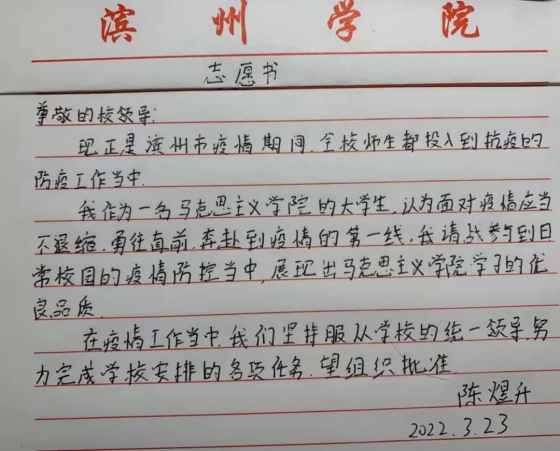 滨州学院
志愿书
尊敬的校领导:
现正是滨州市疫情期间,全校师生都投入到抗疫的
防疫工作当中.
我作为一名马克思主义学院的大学生,认为面对疫情应当
不退缩.勇往直前.奔赴到疫情的第一线,我请战参与到日
常校园的疫情防控当中,展现出马克思主义学院学子的优
良品质.
在疫情工作当中,我们坚持服从学校的统一领导.努
力完成学校安排的各项任务.望组织批准.
陈煜升
2022.3.23